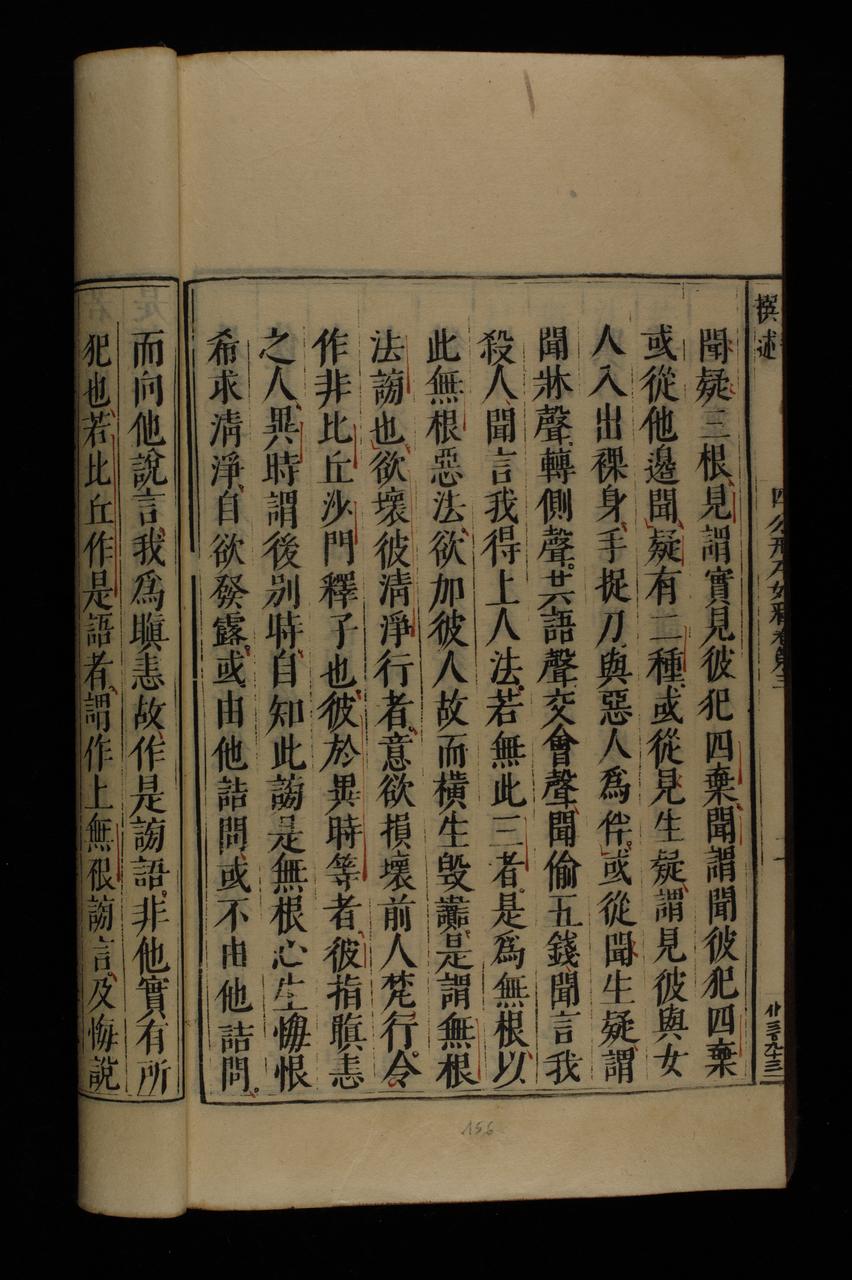 撰述
四分戒本如釋卷第三
二
聞疑三根見謂實見彼犯四棄聞謂聞彼犯四棄
或從他邊聞疑有二種或從見生疑謂見彼與女
人入出裸身手捉刀與惡人為伴或從聞生疑謂
聞牀聲轉側聲共語聲交會聲聞偷五錢聞言我
殺人聞言我得上人法若無此三者是為無根以
此無根惡法欲加彼人故而橫生毀謗是謂無根
法謗也欲壞彼清淨行者意欲損壞前人梵行令
作非比丘沙門釋子也彼於異時等者彼指瞋恚
之人異時謂後別時自知此謗是無根心生悔恨
希求清淨自欲發露或由他詰問或不由他詰問
而向他說言我為瞋恚故作是謗語非他實有所
犯也若比丘作是語者謂作上無根謗言及悔說
156